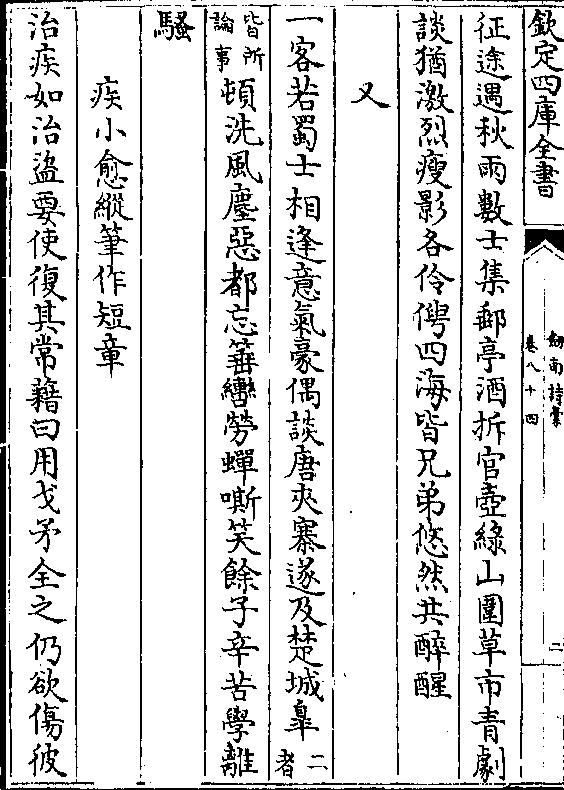 欽定四庫全書
劒南詩稾
卷八十四
二
征途遇秋雨數士集郵亭酒拆官壺綠山圍草市青劇
談猶激烈瘦影各伶俜四海皆兄弟悠然共醉醒
又
一客若蜀士相逢意氣豪偶談唐夾寨遂及楚城臯二者
皆所論事頓洗風塵惡都忘簦轡勞蟬嘶笑餘子辛苦學離
騷
疾小愈縱筆作短章
治疾如治盜要使復其常藉曰用戈矛全之仍欲傷彼